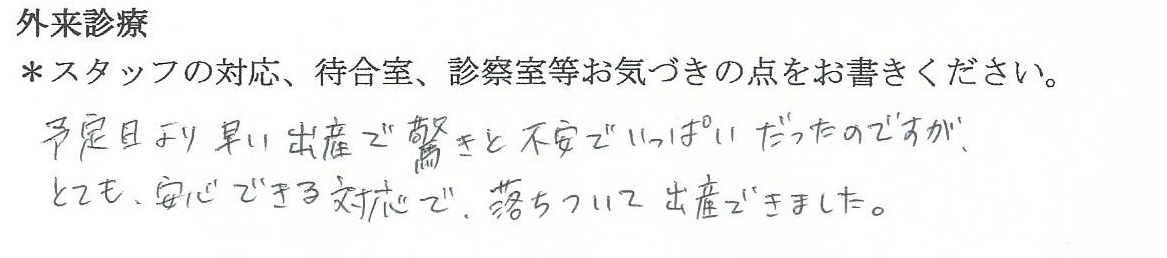 外来診療
＊スタッフの対応、待合室、診察室等お気づきの点をお書きください。
予定日より早い出産で驚きと不安でいっぱいだったのですが、
とても、安心できる対応で、落ちついて出産できました。